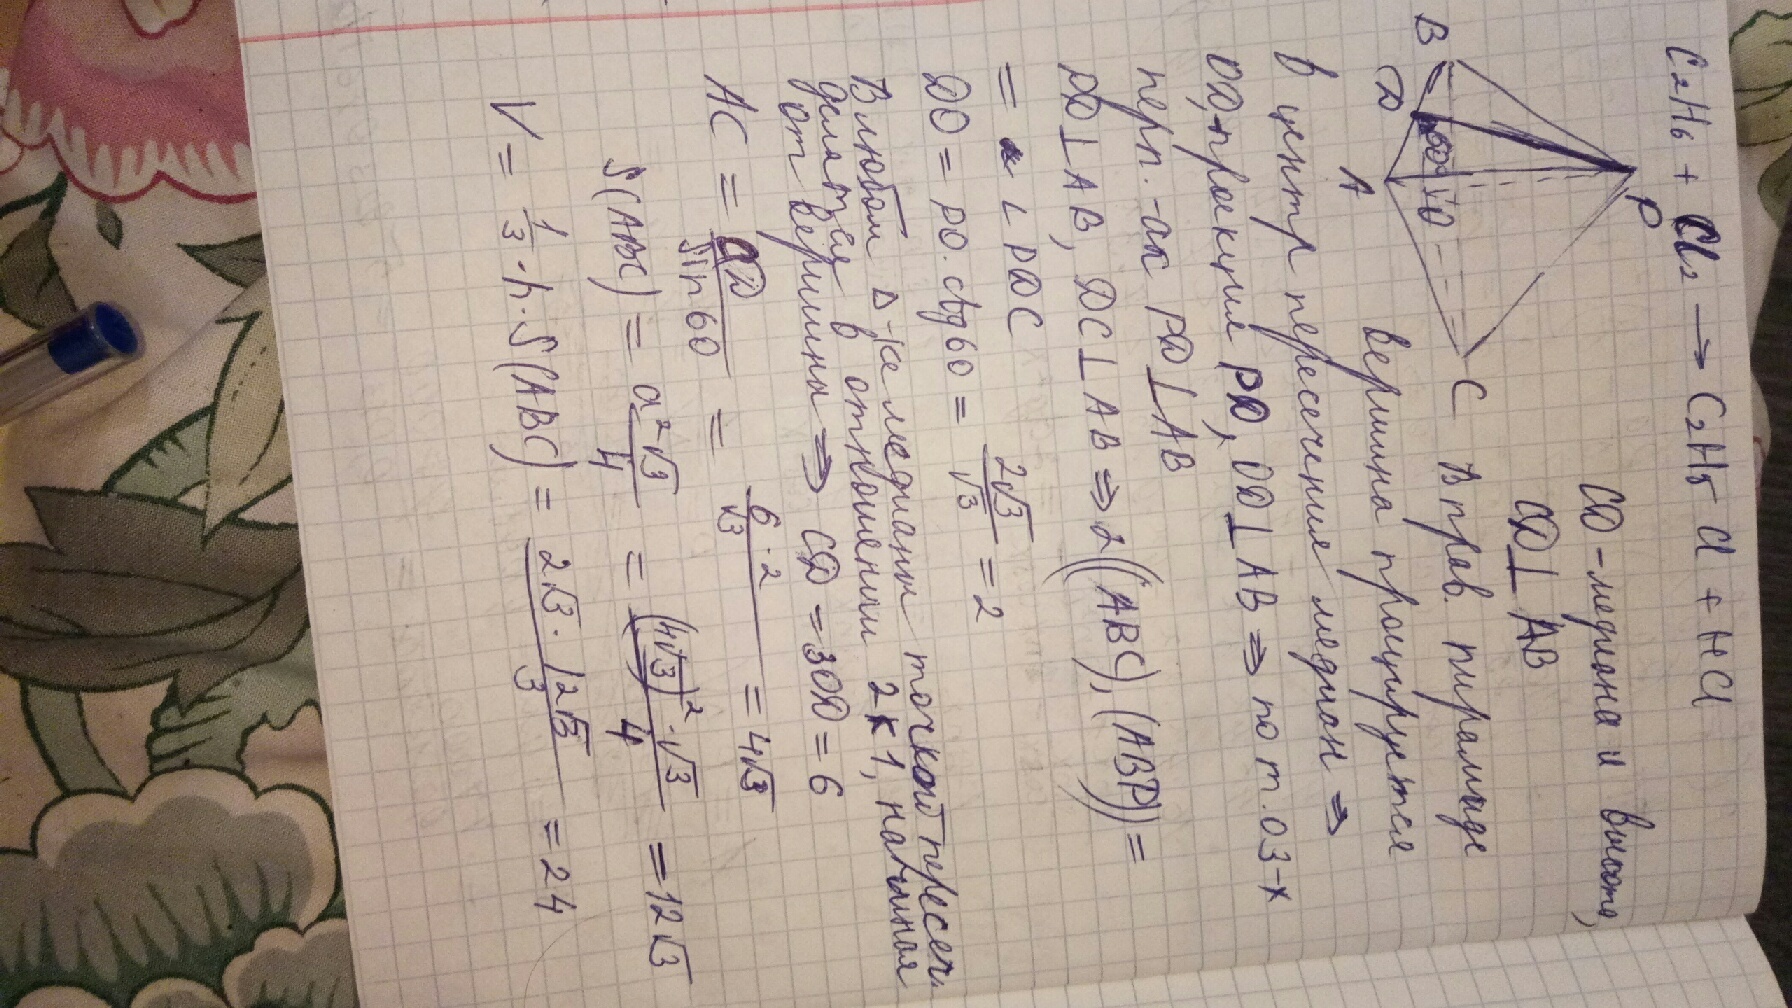 C₂H₆ + Cl₂ → C₂H₅Cl + HCl
P
60°
O
B
D
A
C
CD - медиана и высота,
CD ⊥ AB
В прав. пирамиде
вершина проицируется
в центр пересечения медиан ⇒
OD, проекция PD, OD ⊥ AB ⇒ по т. о 3-х
перп.-ах PD ⊥ AB
PD ⊥ AB, DC ⊥ AB ⇒ ∠((ABC), (ABP)) =
= ∠ PDC
DO = PO · ctg 60 = 2√3/√3 = 2
В любом Δ-ке медианы точкой пересеч.
делятся в отношении 2 к 1, начиная
от вершины ⇒ CD = 3OD = 6
AC = CD/sin 60 = 6·2/√3 = 4√3
S(ABC) = a²√3/4 = (4√3)²·√3/4 = 12√3
V = 1/3 · h · S(ABC) = 2√3 · 12√3/3 = 24